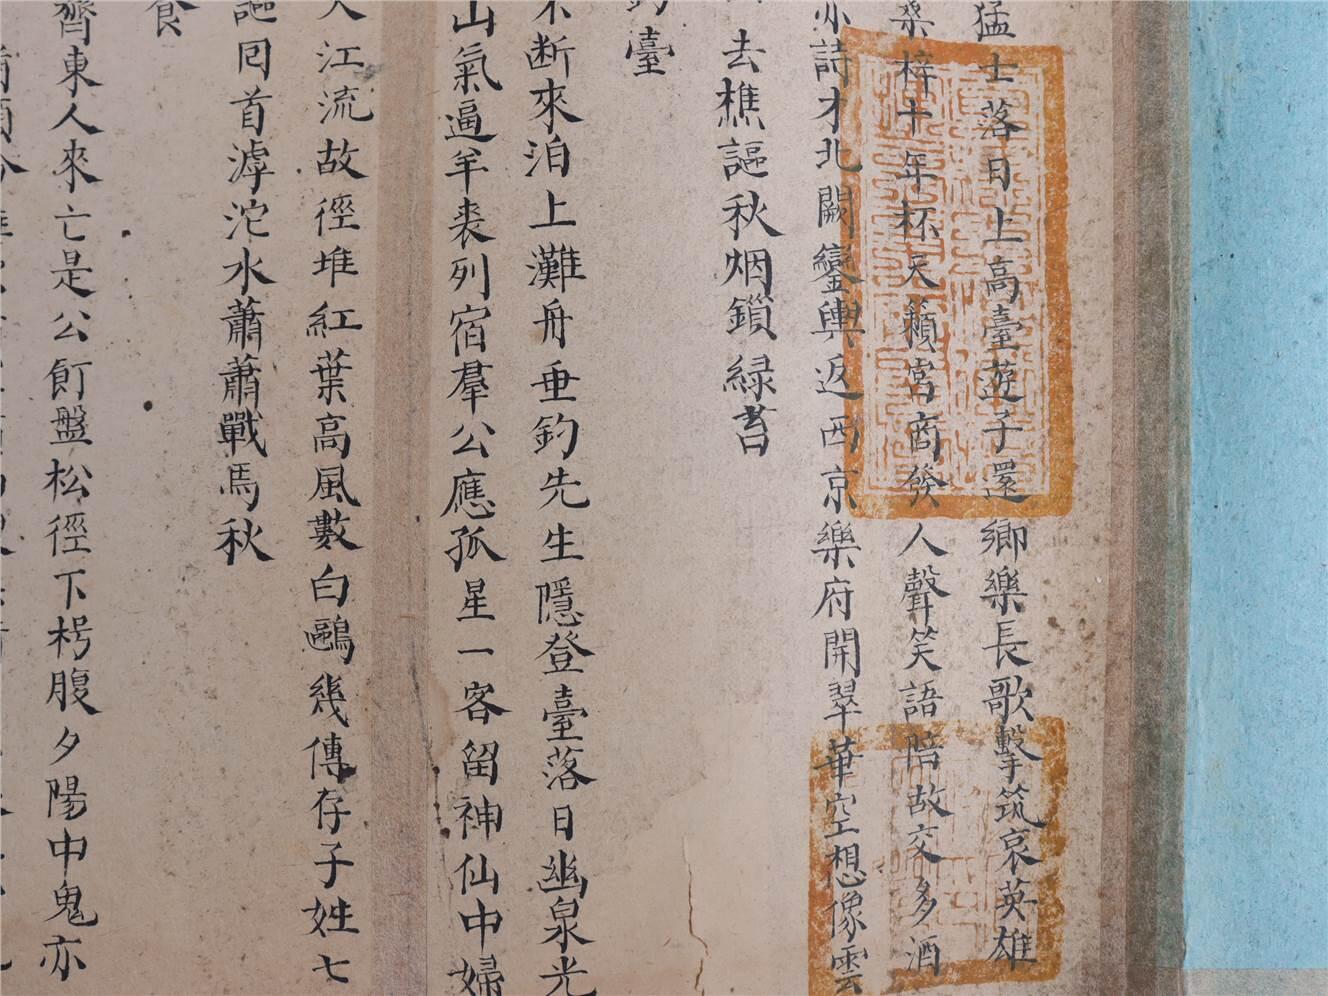 猛士落日上高臺遊子還鄉樂長歌擊筑哀英雄
桑梓十年杯天籟宮商發人聲笑語陪故交多酒
亦詩才北闕鑾輿返西京樂府開翠華空想像雲
去樵謳秋烟鎖綠苔
釣臺
不断來泊上灘舟垂釣先生隱登臺落日幽泉光
山氣逼羊裘列宿羣公應孤星一客留神仙中婦
大江流故徑堆紅葉高風數白鷗幾傳存子姓七
謳回首滹沱水蕭蕭戰馬秋
食
齊東人來亡是公飣盤松徑下枵腹夕陽中鬼亦